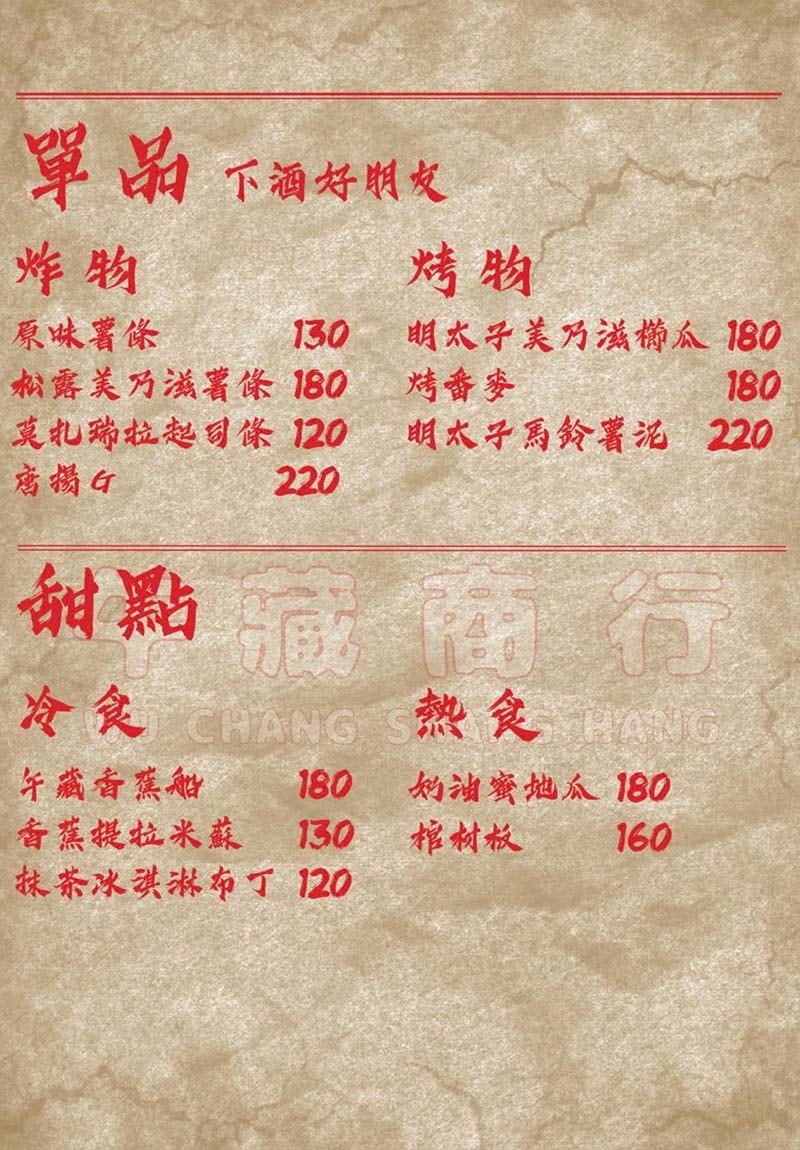 單品 下酒好朋友
炸物
原味薯條 130
松露美乃滋薯條 180
莫扎瑞拉起司條 120
唐揚G 220
烤物
明太子美乃滋櫛瓜 180
烤番麥 180
明太子馬鈴薯泥 220
甜點
午藏商行
WU CHANG SHANG HANG
冷食
午藏香蕉船 180
香蕉提拉米蘇 130
抹茶冰淇淋布丁 120
熱食
奶油蜜地瓜 180
棺材板 160